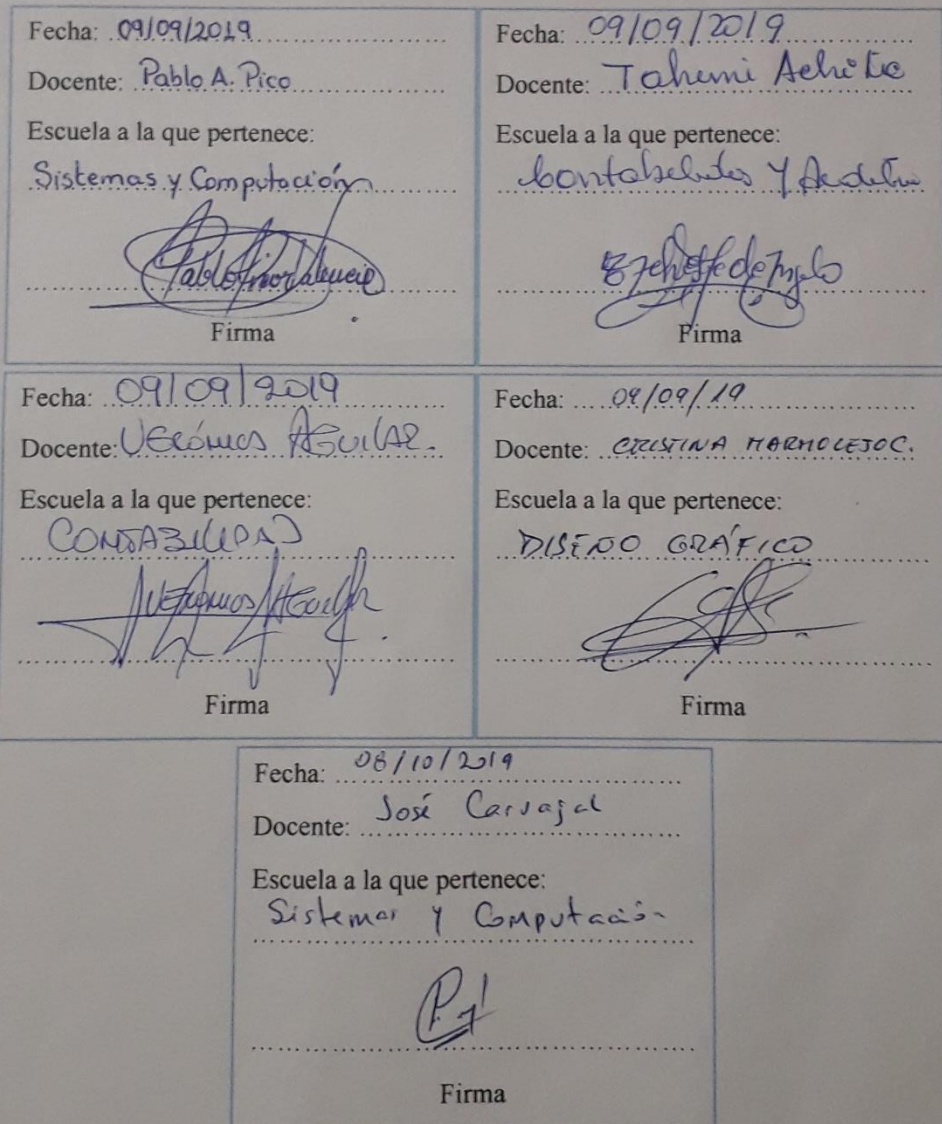 Fecha: 09/09/2019
Docente: Pablo A. Pico
Escuela a la que pertenece:
Sistemas y Computación
Firma
Fecha: 09/09/2019
Docente: Tahimi Achi
Escuela a la que pertenece:
Contabilidad y Auditoría
Firma
Fecha: 09/09/2019
Docente: VERÓNICA AGUILAR.
Escuela a la que pertenece:
CONTABILIDAD
Firma
Fecha: 09/09/19
Docente: CRISTINA MARMOLEJO C.
Escuela a la que pertenece:
DISEÑO GRÁFICO
Firma
Fecha: 08/10/2019
Docente: José Carvajal
Escuela a la que pertenece:
Sistemas y Computación
Firma